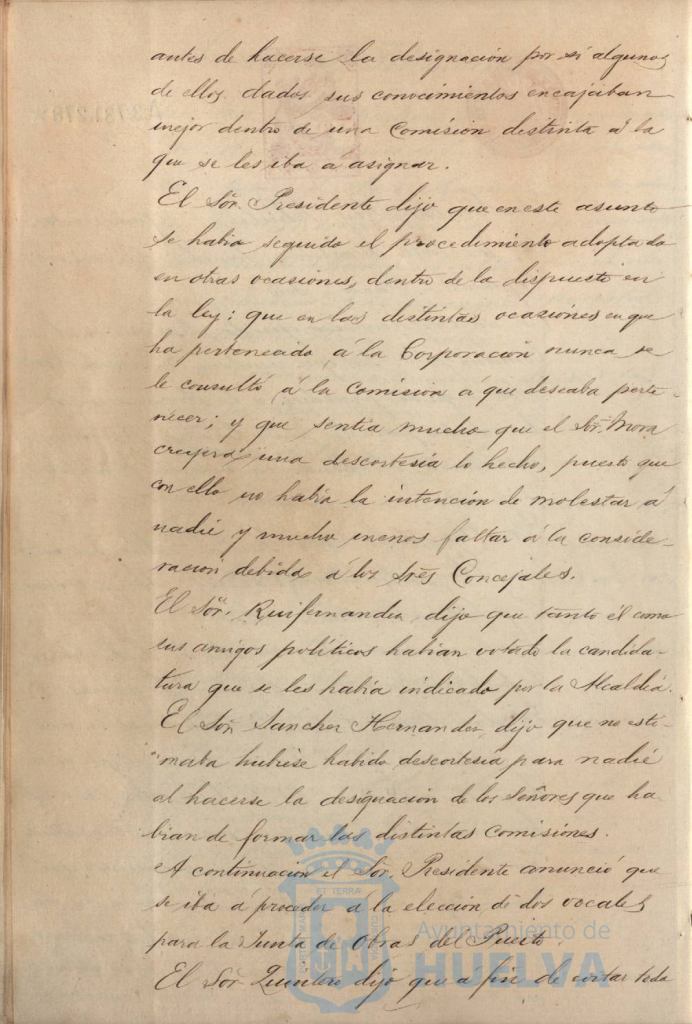 antes de hacerse la designación por si algunos
de ellos, dados sus conocimientos encajaban
mejor dentro de una Comisión distinta a la
que se les iba a asignar.
El Sor. Presidente dijo que en este asunto
se había seguido el procedimiento adoptado
en otras ocasiones, dentro de lo dispuesto en
la ley: que en las distintas ocasiones en que
ha pertenecido á la Corporación nunca se
le consultó á la Comisión á que deseaba perte-
necer; y que sentía mucho que el Sor. Mora
creyera una descortesía lo hecho, puesto que
con ello no había la intención de molestar á
nadie y mucho menos faltar á la conside-
ración debida á los Sres Concejales.
El Sor. Ruifernandez dijo que tanto él como
sus amigos políticos habian votado la candida-
tura que se les había indicado por la Alcaldía.
El Sor. Sanchez Hernandez, dijo que no esti-
maba hubiese habido descortesía para nadie
al hacerse la designación de los señores que ha
bian de formar las distintas comisiones.
A continuación el Sor. Presidente anunció que
se iba á proceder á la elección de dos vocales
para la Junta de Obras del Puerto.
El Sor. Quintero dijo que a fin de cortar toda
ET TERRA
Ayuntamiento de
HUELVA